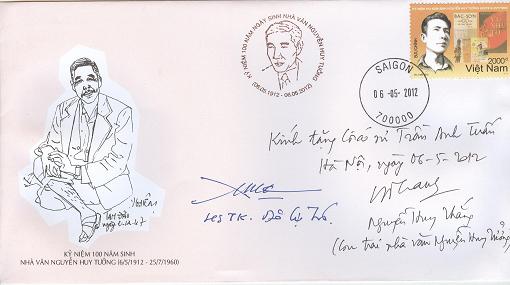 KỶ NIỆM 100 NĂM NGÀY SINH NHÀ VĂN NGUYỄN HUY TƯỞNG
(06.05.1912 - 06.05.2012)
SAIGON
06-05-2012
700000
BẮC SƠN
2000đ
Việt Nam
Kính tặng
Trần Anh Tuấn
Hà Nội, ngày 06-5-2012
Nguyễn Huy Thắng
(Con trai nhà văn Nguyễn Huy Tưởng)
KỶ NIỆM 100 NĂM SINH
NHÀ VĂN NGUYỄN HUY TƯỞNG (6/5/1912 - 25/7/1960)